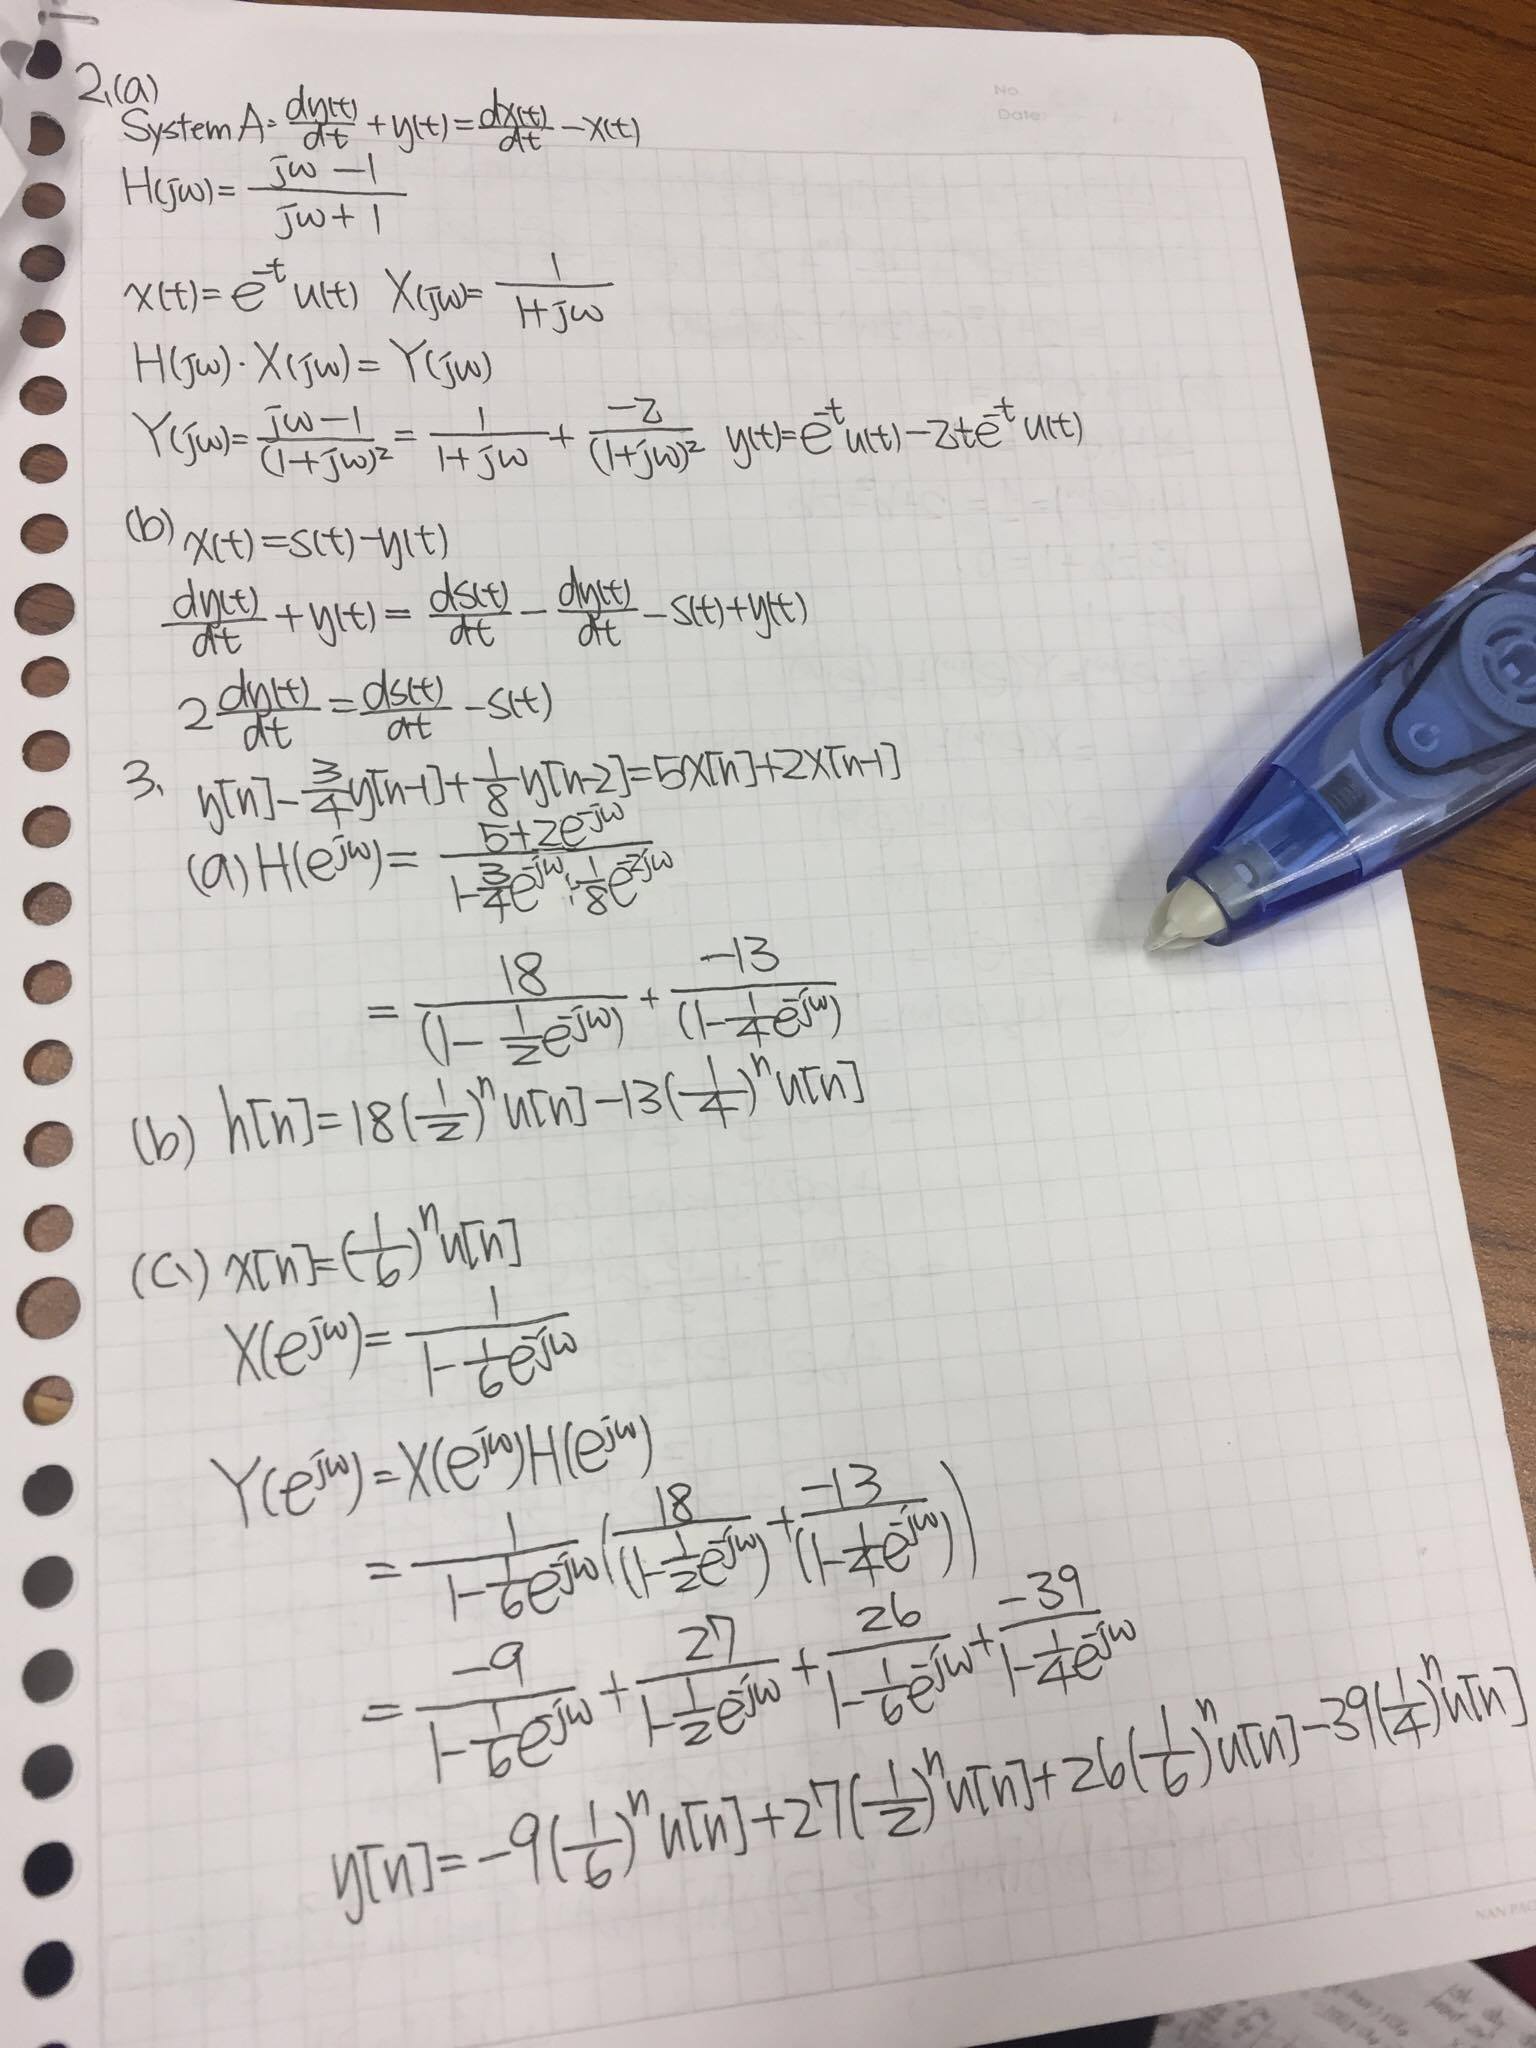 No.
Date
2.(a)
System A: dy(t)/dt + y(t) = dx(t)/dt - x(t)
H(jω) = (jω - 1)/(jω + 1)
x(t) = e^-t u(t) X(jω) = 1/(1+jω)
H(jω)·X(jω) = Y(jω)
Y(jω) = (jω - 1)/(1+jω)² = 1/(1+jω) + -2/(1+jω)² y(t) = e^-t u(t) - 2te^-t u(t)
(b) x(t) = s(t) - y(t)
dy(t)/dt + y(t) = ds(t)/dt - dy(t)/dt - s(t) + y(t)
2 dy(t)/dt = ds(t)/dt - s(t)
3. y[n] - 3/4 y[n-1] + 1/8 y[n-2] = 5x[n] + 2x[n-1]
(a) H(e^jω) = (5 + 2e^-jω)/(1 - 3/4 e^-jω + 1/8 e^-2jω)
= 18/(1 - 1/2 e^-jω) + -13/(1 - 1/4 e^-jω)
(b) h[n] = 18(1/2)^n u[n] - 13(1/4)^n u[n]
(c) x[n] = (1/6)^n u[n]
X(e^jω) = 1/(1 - 1/6 e^-jω)
Y(e^jω) = X(e^jω)H(e^jω)
= 1/(1 - 1/6 e^-jω) (18/(1 - 1/2 e^-jω) + -13/(1 - 1/4 e^-jω))
= -9/(1 - 1/6 e^-jω) + 27/(1 - 1/2 e^-jω) + 26/(1 - 1/6 e^-jω) + -39/(1 - 1/4 e^-jω)
y[n] = -9(1/6)^n u[n] + 27(1/2)^n u[n] + 26(1/6)^n u[n] - 39(1/4)^n u[n]